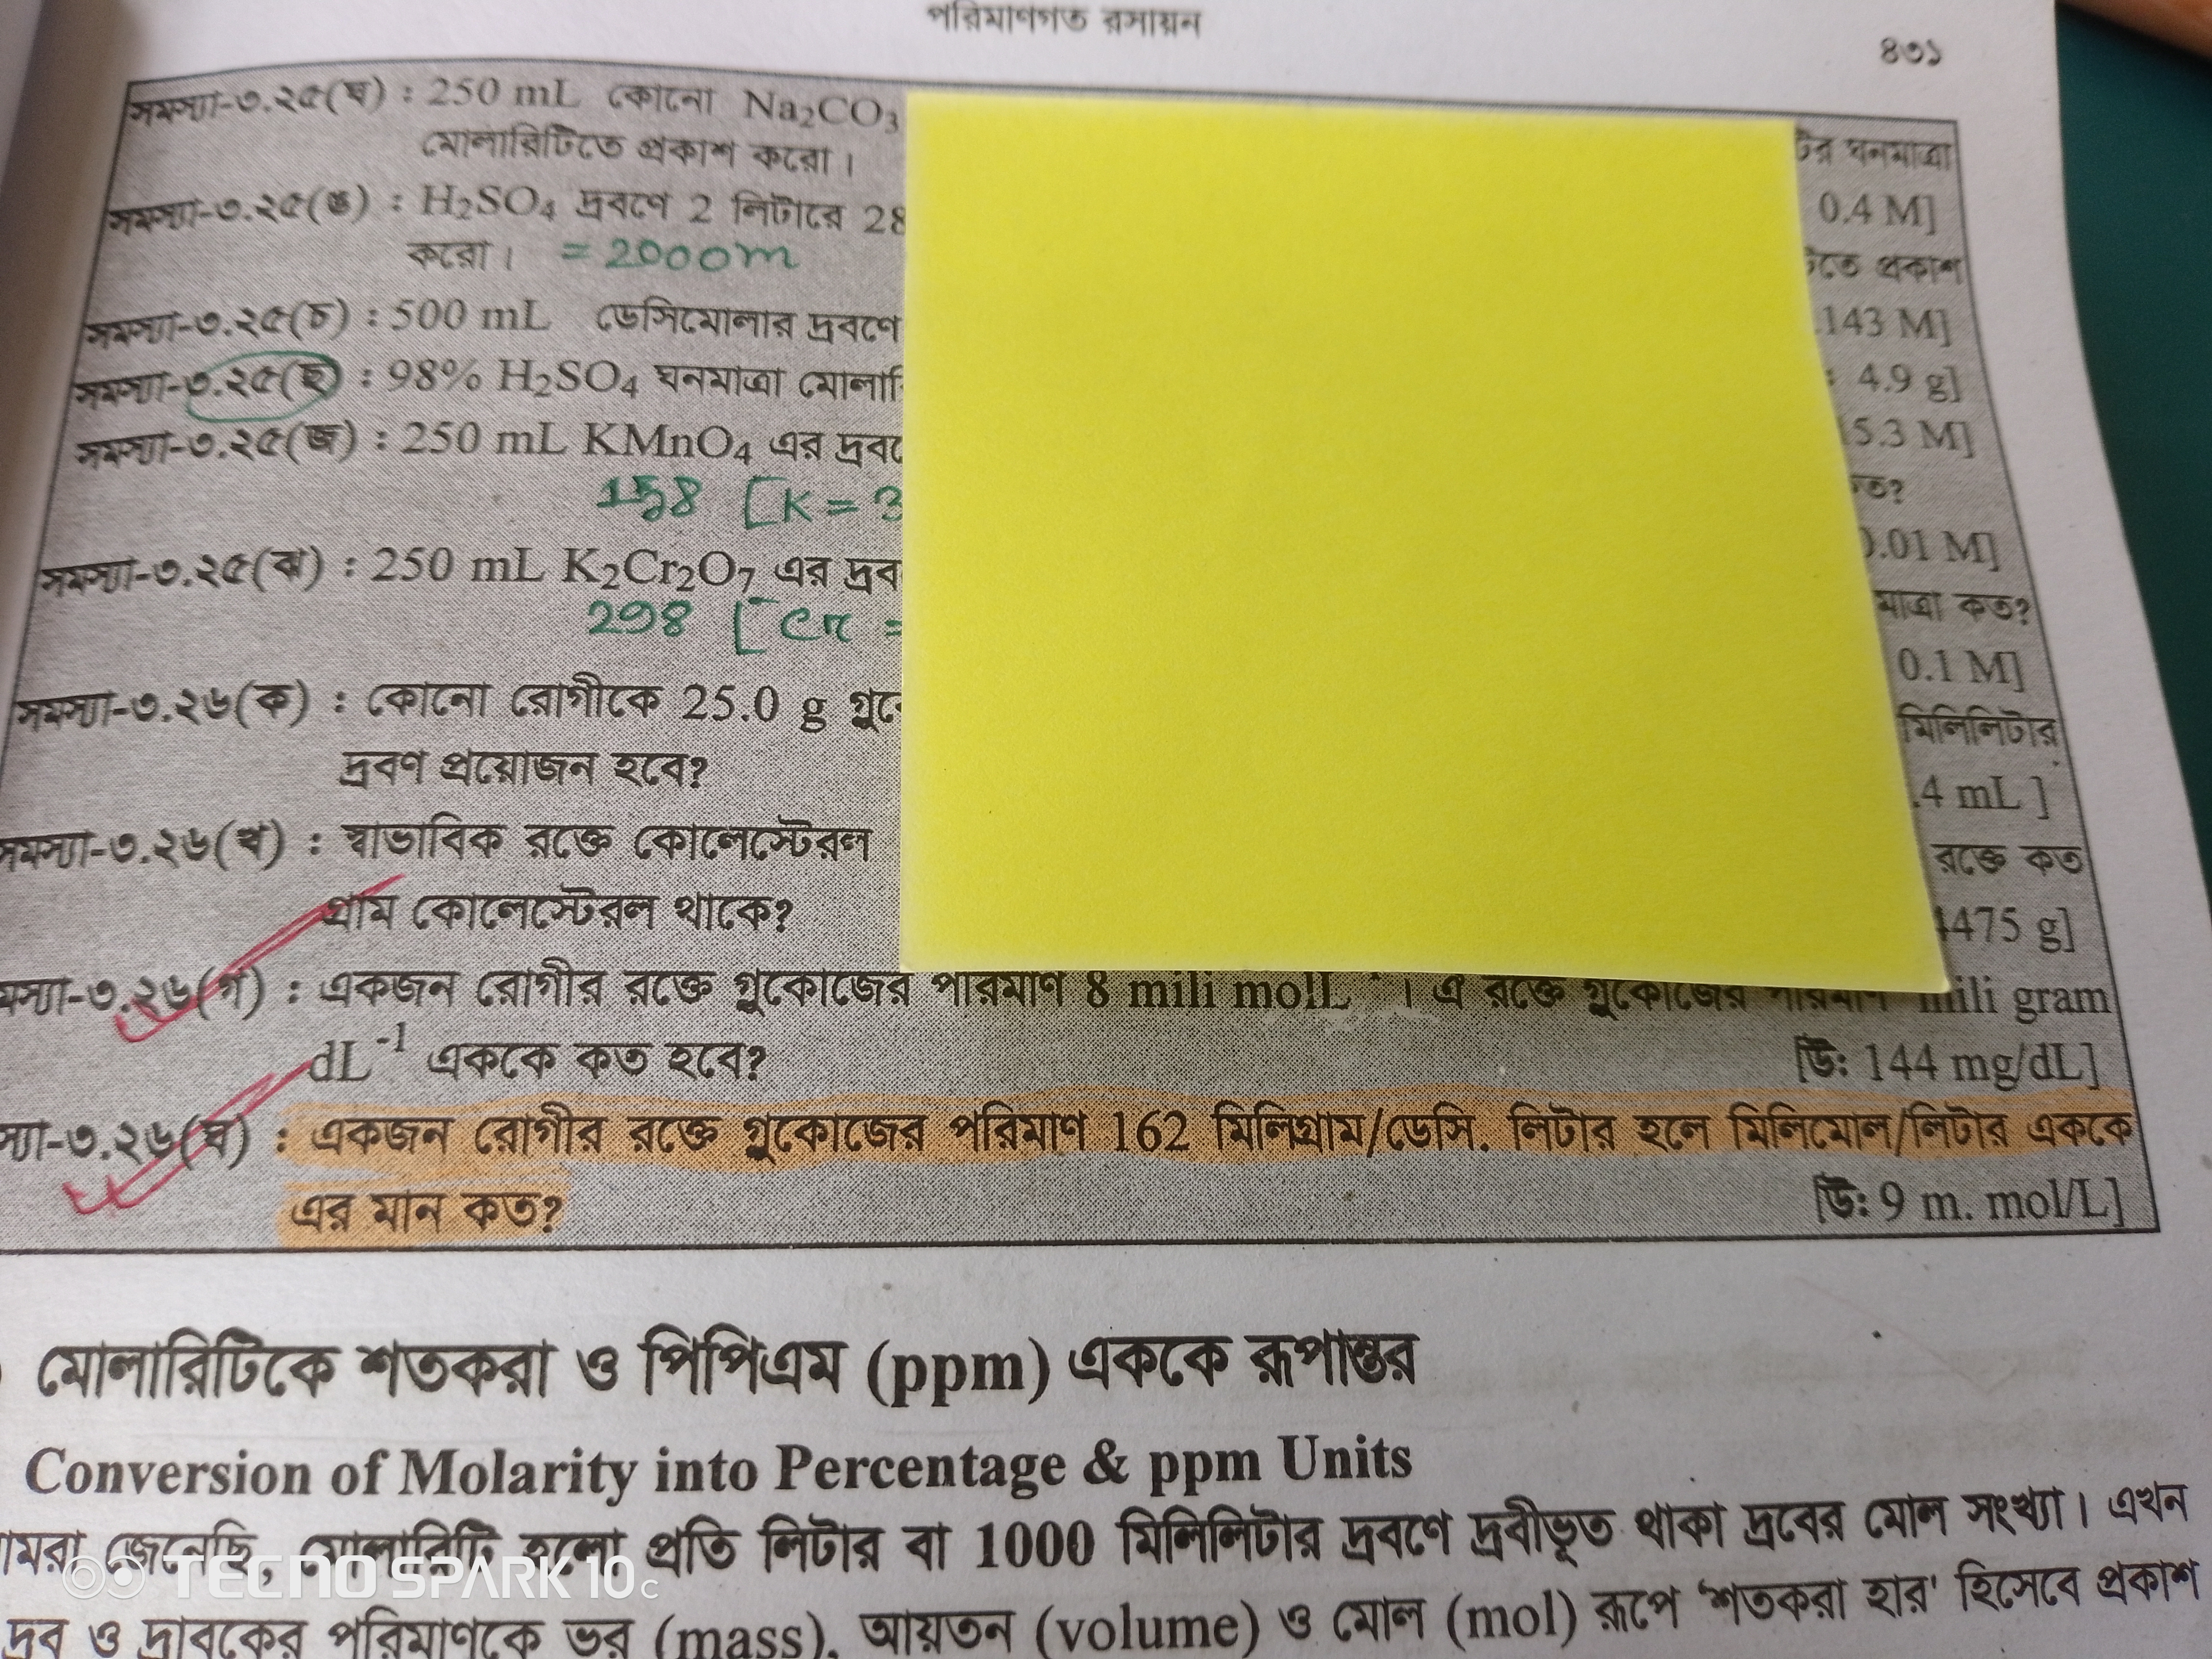 পরিমাণগত রসায়ন
৪৩১
সমস্যা-৩.২৫(ঘ) : 250 mL কোনো Na₂CO₃ টির ঘনমাত্রা
মোলারিটিতে প্রকাশ করো। 0.4 M]
সমস্যা-৩.২৫(ঙ) : H₂SO₄ দ্রবণে 2 লিটারে 28 টিতে প্রকাশ
করো। = 2000m .143 M]
সমস্যা-৩.২৫(চ) : 500 mL ডেসিমোলার দ্রবণে : 4.9 g]
সমস্যা-৩.২৫(ছ) : 98% H₂SO₄ ঘনমাত্রা মোলারি 5.3 M]
সমস্যা-৩.২৫(জ) : 250 mL KMnO₄ এর দ্রবণে ত?
158 [K = 3 0.01 M]
সমস্যা-৩.২৫(ঝ) : 250 mL K₂Cr₂O₇ এর দ্রব মাত্রা কত?
298 [Cr = 0.1 M]
সমস্যা-৩.২৬(ক) : কোনো রোগীকে 25.0 g গ্লুকো মিলিলিটার
দ্রবণ প্রয়োজন হবে? .4 mL ]
সমস্যা-৩.২৬(খ) : স্বাভাবিক রক্তে কোলেস্টেরল রক্তে কত
গ্রাম কোলেস্টেরল থাকে? 4475 g]
মস্যা-৩.২৬(গ) : একজন রোগীর রক্তে গ্লুকোজের পরিমাণ 8 mili molL⁻¹ । এ রক্তে গ্লুকোজের পরিমাণ mili gram
dL⁻¹ এককে কত হবে? [উ: 144 mg/dL]
স্যা-৩.২৬(ঘ) : একজন রোগীর রক্তে গ্লুকোজের পরিমাণ 162 মিলিগ্রাম/ডেসি. লিটার হলে মিলিমোল/লিটার এককে
এর মান কত? [উ: 9 m. mol/L]
মোলারিটিকে শতকরা ও পিপিএম (ppm) এককে রূপান্তর
Conversion of Molarity into Percentage & ppm Units
ামরা জেনেছি, মোলারিটি হলো প্রতি লিটার বা 1000 মিলিলিটার দ্রবণে দ্রবীভূত থাকা দ্রবের মোল সংখ্যা। এখন
TECNO SPARK 10c
দ্রব ও দ্রাবকের পরিমাণকে ভর (mass), আয়তন (volume) ও মোল (mol) রূপে 'শতকরা হার' হিসেবে প্রকাশ